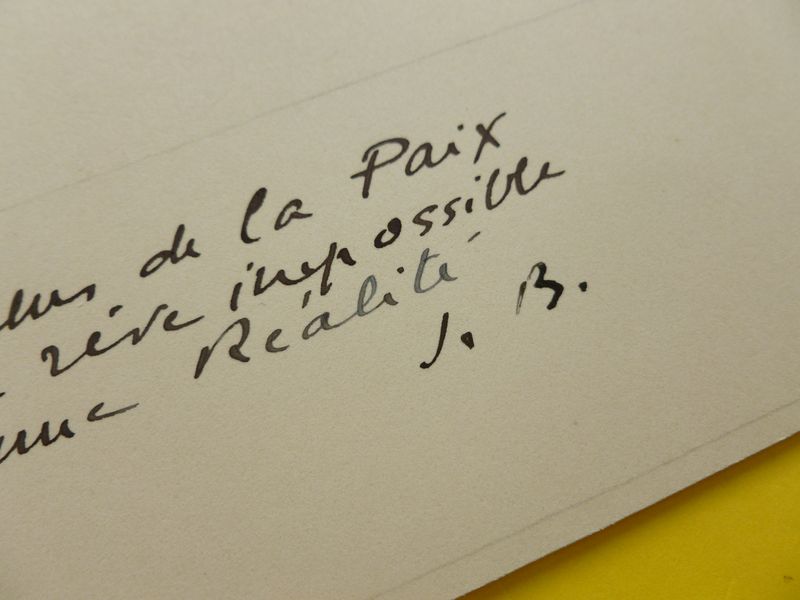 de la Paix
rêve impossible
Réalité
J. B.